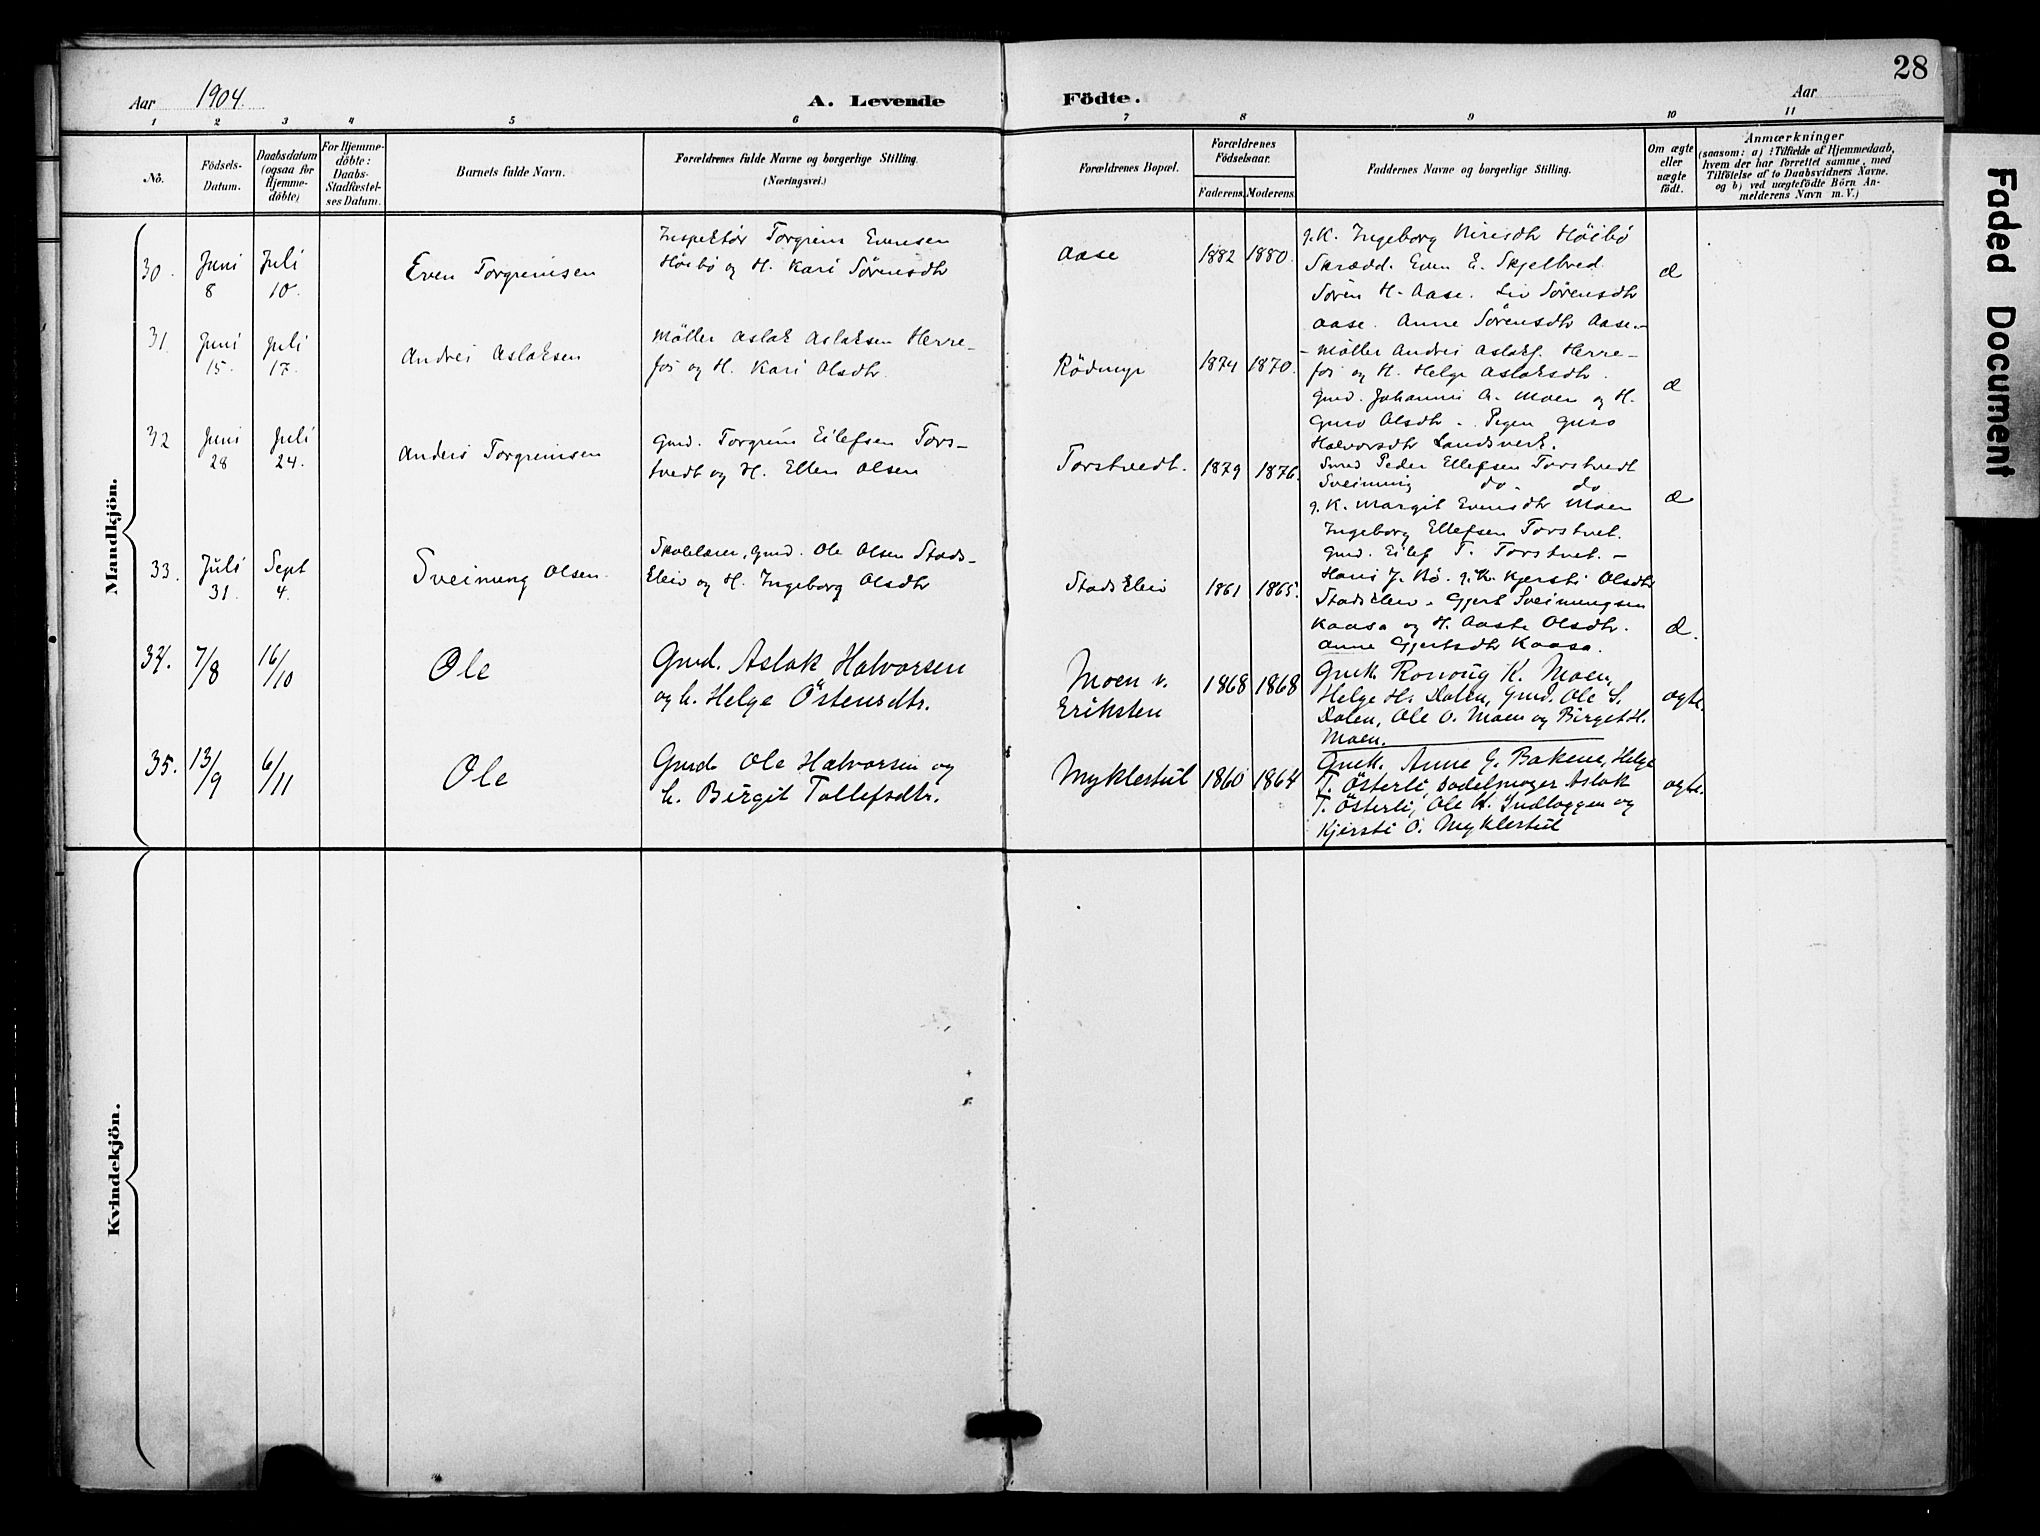 28
Aar 1904.
A. Levende Födte.
Aar
1 2 3 4 5 6 7 8 9 10 11
No.
Födsels-
Datum.
Daabsdatum
(ogsaa for
Hjemme-
döbte)
For Hjemme-
döbte:
Daabs-
Stadfæstel-
ses Datum.
Barnets fulde Navn.
Forældrenes fulde Navne og borgerlige Stilling.
(Næringsvei.)
Forældrenes Bopæl.
Forældrenes
Födselsaar.
Faderens. Moderens.
Faddernes Navne og borgerlige Stilling.
Om ægte
eller
uægte
födt.
Anmærkninger
(saasom: a) i Tilfælde af Hjemmedaab,
hvem der har forrettet samme, med
Tilföielse af to Daabsvidners Navne,
og b) ved uægtefödte Börn An-
melderens Navn m. V.)
Mandkjön.
30.
Juni
8
Juli
10.
Even Torgrimsen
Inspektör Torgrim Evensen
Höibö og H. Kari Sörensdtr
Aase
1882 1880.
g.K. Ingeborg Höibö
Skrædd. Even E. Skjelbred
Sören H. Aase. Liv Sörensdtr
Aase. Anne Sörensdtr Aase.-
Æ
31.
Juni
15.
Juli
17.
Andres Aslaksen
Möller Aslak Aslaksen Herre-
fos og H. Kari Olsdtr.
Rödmyr
1874 1870.
- Möller Andres Aslaks. Herre-
fos og H. Helge Aslaksdtr.
Gmd. Johannes A. Moen og H.
Guro Olsdtr. Pigen Guro
Halvorsdtr Landsverk.
Æ
32
Juni
28
Juli
24.
Anders Torgrimsen
Gmd. Torgrim Eilefsen Tors-
tvedt og H. Ellen Olsen
Torstvedt.
1879 1876.
Smed Peder Ellefsen Torstvedt
Sveinung do. do
g.K. Margit Evensdtr Moen
Ingeborg Ellefsen Torstvet.
Gmd. Eilef T. Torstvet. -
Æ
33.
Juli
31.
Sept
4.
Sveinung Olsen.
Skolelærer, Gmd. Ole Olsen Stads-
kleiv og H. Ingeborg Olsdtr
Stadskleiv
1861 1865.
Hans J. Bö. g.K. Kjersti Olsdtr
Stadskleiv. Gjert Sveinungsen
Kaasa og H. Aaste Olsdtr.
Anne Gjertsdtr Kaasa.
Æ.
34.
7/8
16/10
Ole
Gmd. Aslak Halvorsen
og h. Helge Östensdtr.
Moen v.
Eriksten
1868 1868
Gmk. Ronoug K. Moen,
Helge H. Dalen, Gmd. Ole S.
Dalen, Ole O. Moen og Birget H.
Moen.
ægte.
35.
13/9
6/11
Ole
Gmd. Ole Halvorsen og
h. Birgit Tollefsdtr.
Myklestul
1860 1864
Gmk. Anne G. Bakene, Helge
T. Österli, Sadelmager Aslak
T. Österli, Ole H. Indlaggen og
Kjersti O. Myklestul
ægte.
Kvindekjön.
Faded Document